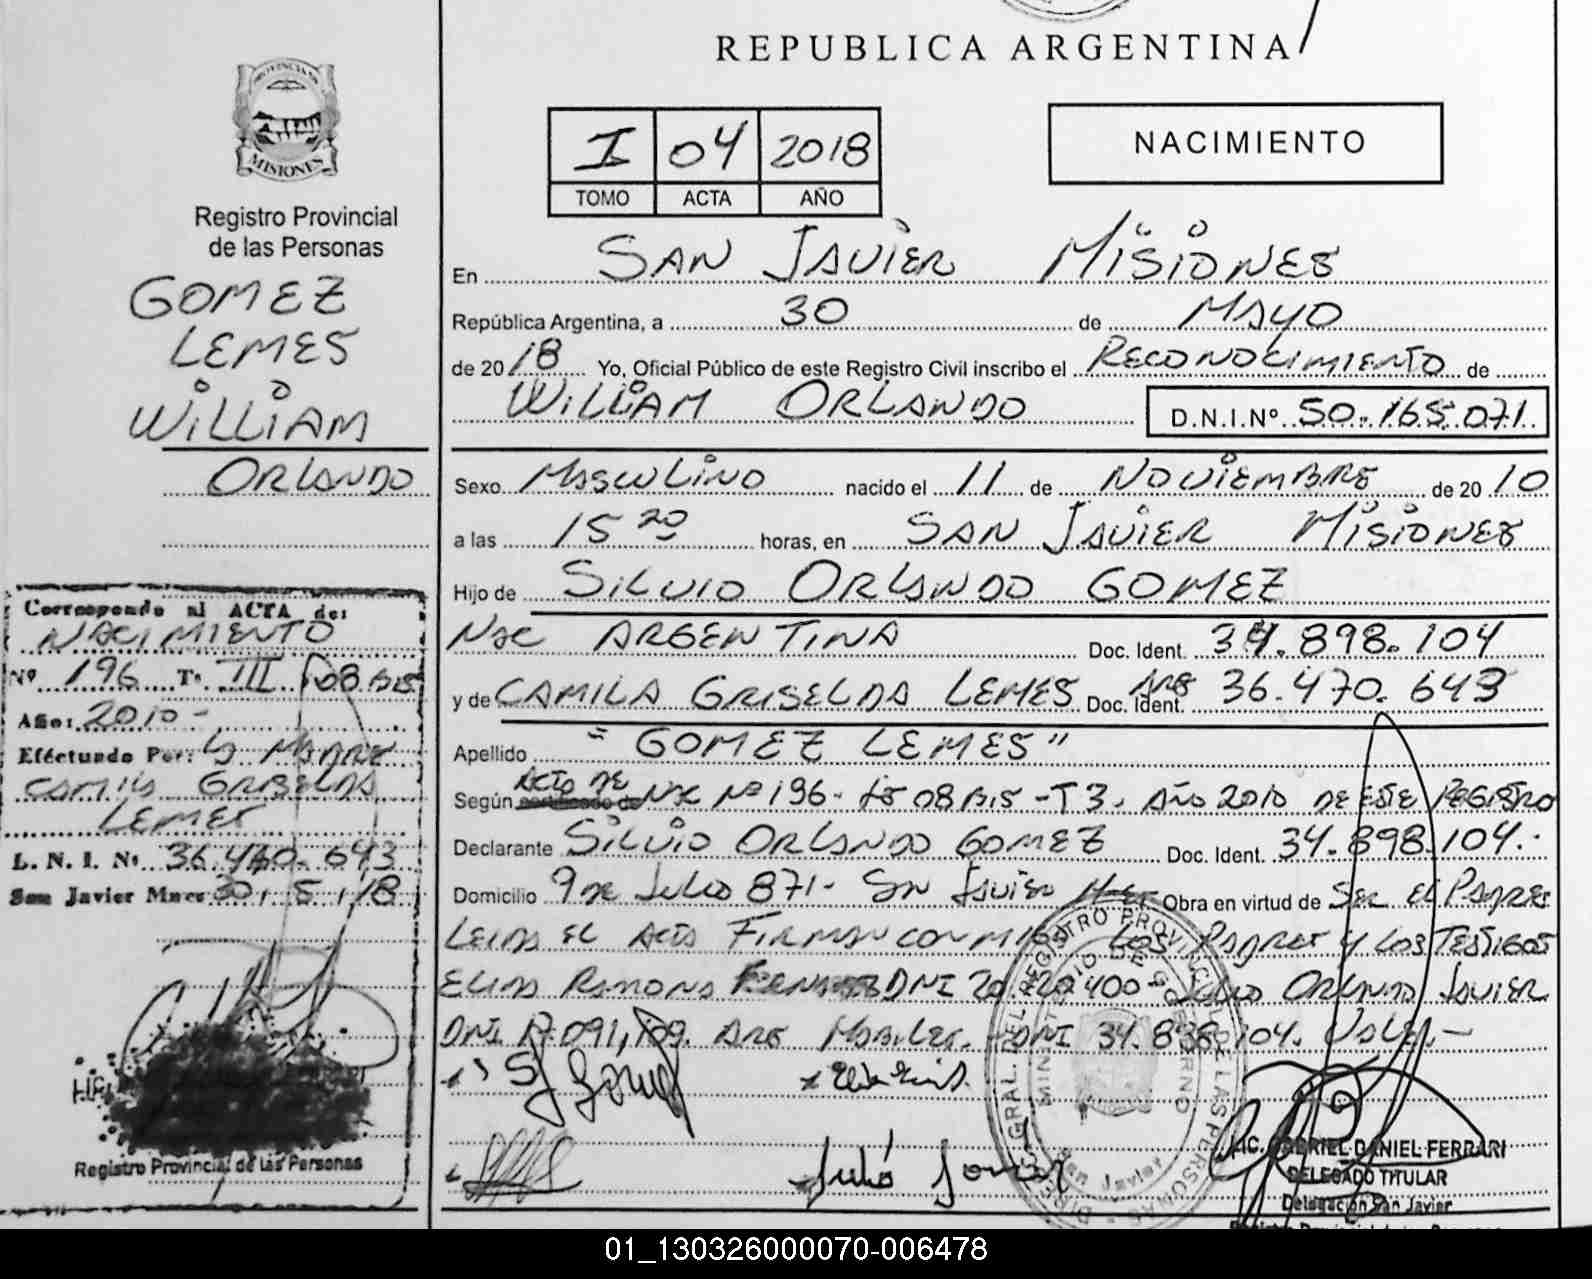 REPUBLICA ARGENTINA
PROVINCIA DE
MISIONES
Registro Provincial
de las Personas
GOMEZ
LEMES
WiLLiAM
ORLANDO
I 04 2018
TOMO ACTA AÑO
NACIMIENTO
En SAN JAVIER MiSiONES
República Argentina, a 30 de MAYO
de 2018 Yo, Oficial Público de este Registro Civil inscribo el RECONOCIMIENTO de
WiLLiAM ORLANDO D.N.I.Nº 50.165.071
Sexo MASCULiNO nacido el 11 de NOViEMBRE de 2010
a las 15 20 horas, en SAN JAViER MiSiONES
Hijo de SiLViO ORLANDO GOMEZ
NAC ARGENTINA Doc. Ident. 34.898.104
y de CAMILA GRISELDA LEMES Doc. Ident. ARG 36.470.643
Apellido "GOMEZ LEMES"
Según certificado de ACTA DE NAC Nº 196 - Fº 08 BIS - T 3. AÑO 2010 DE ESTE REGISTRO
Declarante SiLViO ORLANDO GOMEZ Doc. Ident. 34.898.104.-
Domicilio 9 DE JULIO 871- SAN JAVIER Obra en virtud de SER EL PADRE
LEIDA EL ACTA FIRMAN CONMIGO LOS PADRES Y LOS TESTIGOS
ELIDA RAMONA DNI 20. 400- JULIO ORLANDO JAVIER
DNI 17.091,109. ARG DNI 34.898.104. VALE.-
Corresponde al ACTA de:
NACIMIENTO
Nº 196 Tº III Fº 08 BIS
Año: 2010-
Eféctuado Por: LA MADRE
CAMILA GRISELDA
LEMES
L. N. I. Nº 36.470.643
San Javier Mnes 30, 5, 18
Registro Provincial de las Personas
DIREC. GRAL. DEL REGISTRO PROVINCIAL DE LAS PERSONAS
MINISTERIO DE GOBIERNO
San Javier
LIC. GABRIEL DANIEL FERRARI
DELEGADO TITULAR
Delegación San Javier
01_130326000070-006478